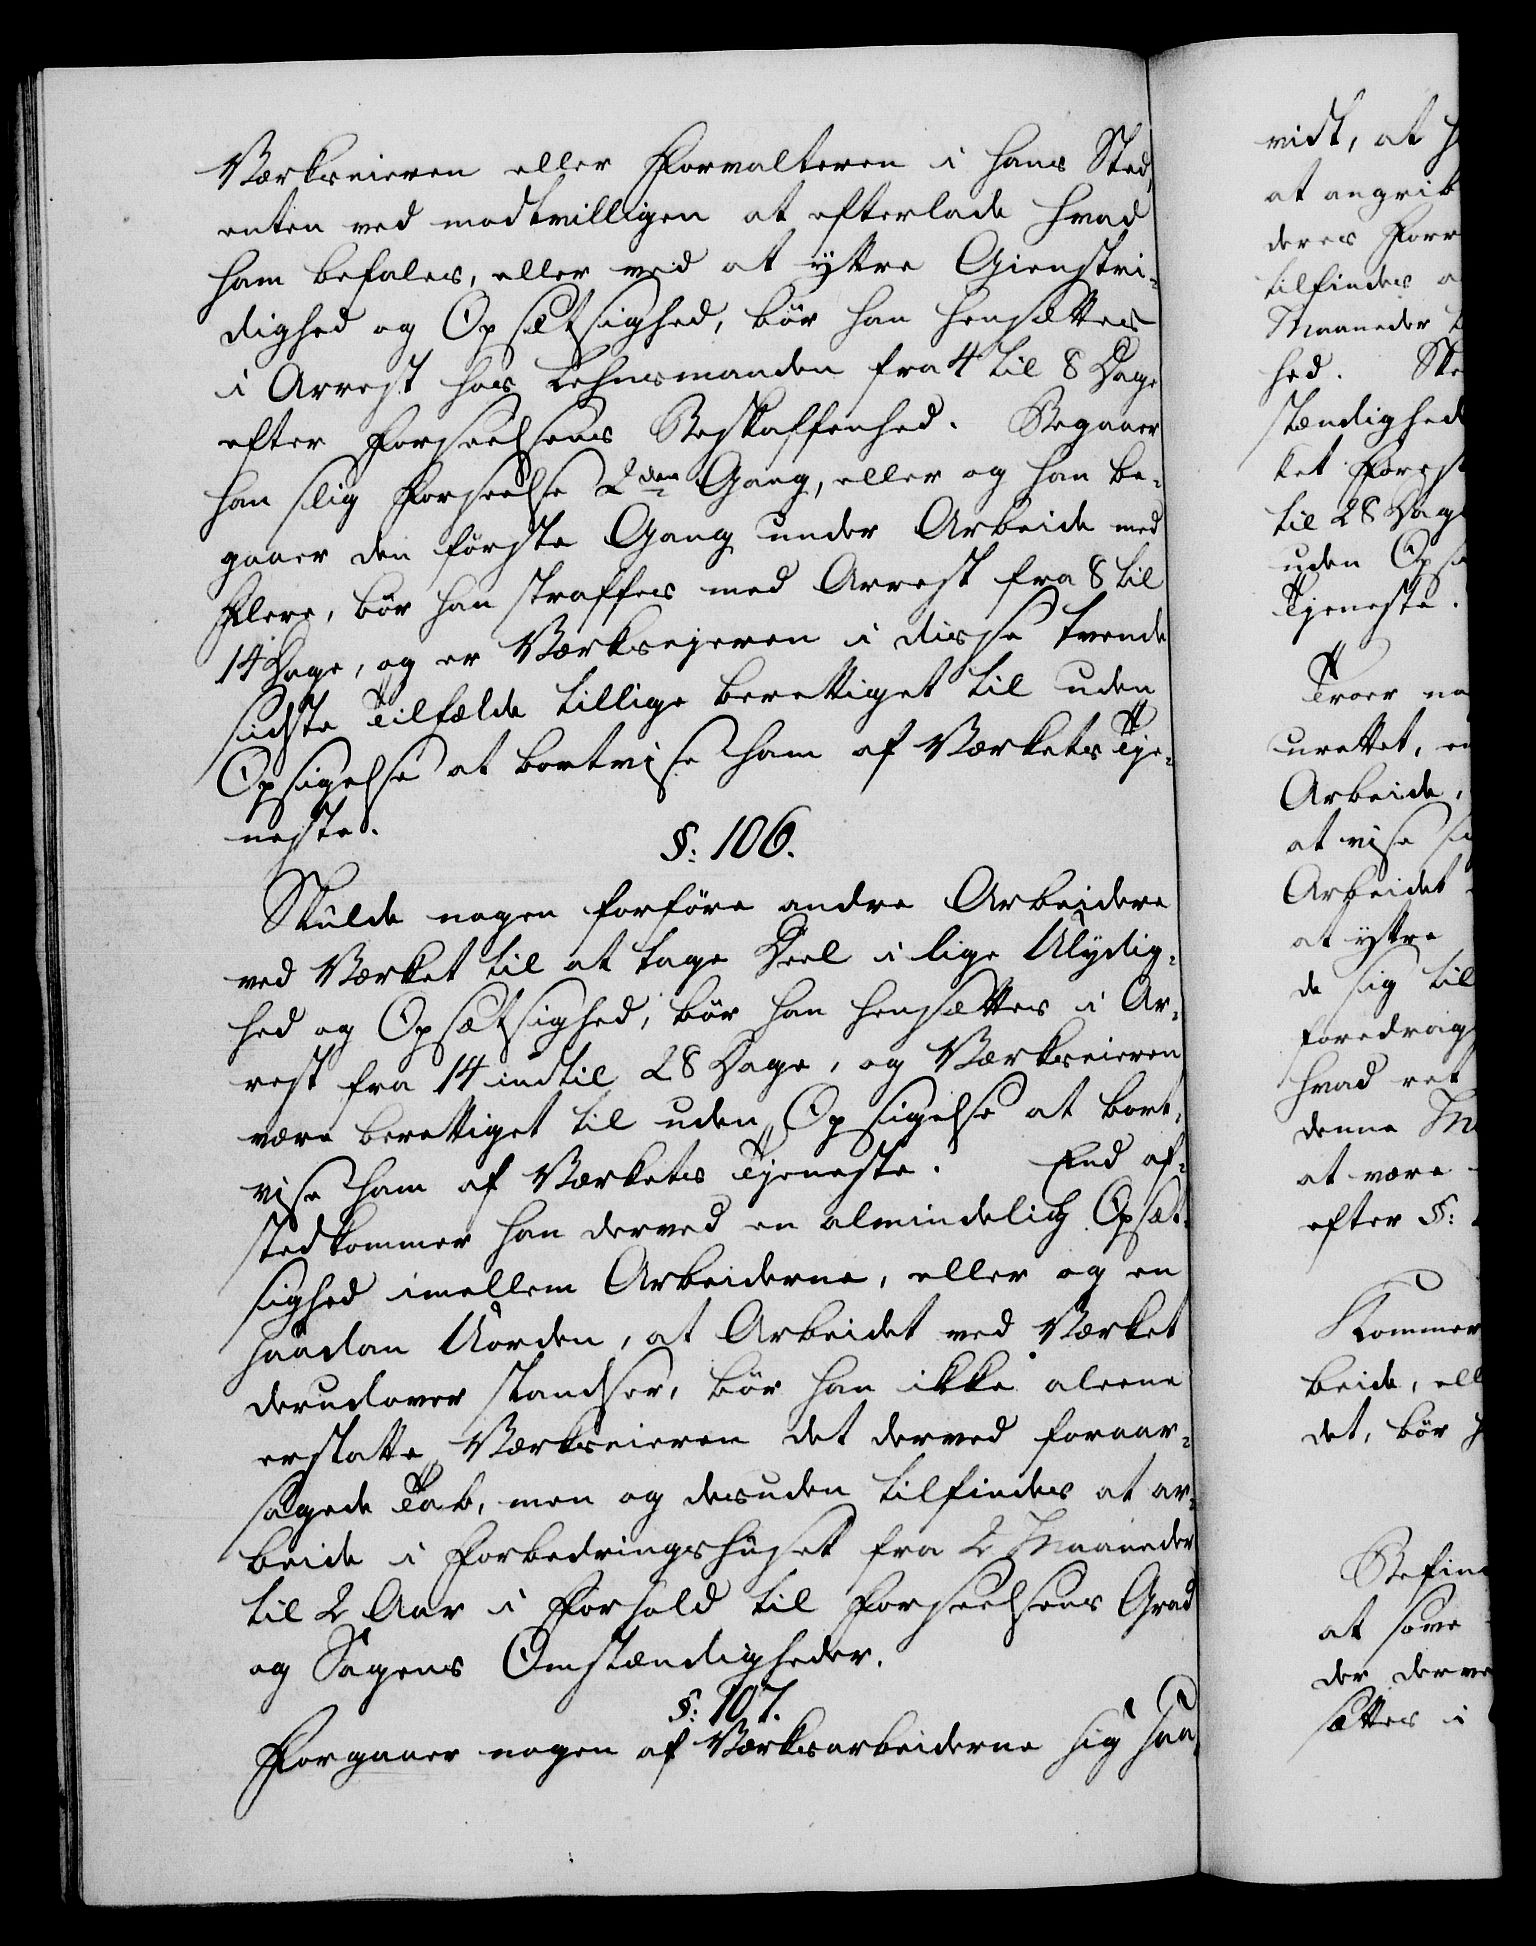 Værkseieren eller Forvalteren i hans Sted,
enten ved modtvilligen at efterlade hvad
ham befales, eller ved at yttre Gienstri-
dighed og Opsætsighed, bör han hensættes
i Arrest hos Lehnsmanden fra 4 til 8 Dage
efter Forseelsens Beskaffenhed. Begaaer
han slig Forseelse 2den Gang, eller og han be-
gaaer den förste Gang under Arbeide med
Flere, bör han straffes med Arrest fra 8 til
14 Dage, og er Værksejeren i disse tvende
sidste Tilfælde tillige berettiget til uden
Opsigelse at bortvise ham af Værkets Tje-
neste.
§: 106.
Skulde nogen forföre andre Arbeidere
ved Værket til at tage Deel i lige Ulydig-
hed og Opsætsighed, bör han hensættes i Ar-
rest fra 14 indtil 28 Dage, og Værkseieren
være berettiget til uden Opsigelse at bort-
vise ham af Værkets Tjeneste. End af-
stedkommer han derved en almindelig Opsæt-
sighed imellem Arbeiderne, eller og en
saadan Uorden, at Arbeidet ved Værket
derudover standser, bör han ikke aleene
erstatte Værkseieren det derved foraar-
sagede Tab, men og desuden tilfindes at ar-
beide i Forbedringshuset fra 2 Maaneder
til 2 Aar i Forhold til Forseelsens Grad
og Sagens Omstændigheder.
§: 107.
Forgaaer nogen af Værksarbeiderne sig saa-
vidt, at
at angrib
deres Forr
tilfindes
Maaneder
hed.
stændighed
ket Forst
til 28 Dage
uden Ops
Tjeneste.
Troer no
urettet, en
Arbeide,
at vise
Arbeidet
at yttre
de sig til
foredrag
hvad ret
denne
at være
efter §:
Kommer
beide, ell
det, bör
Befind
at sove
der derve
sættes i